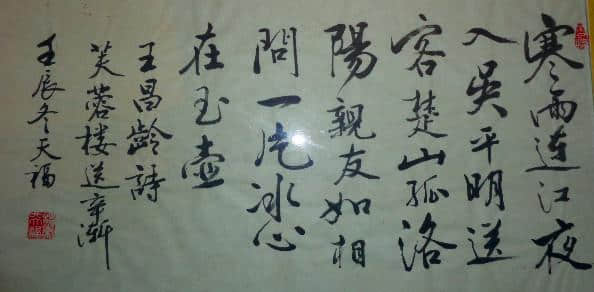 寒雨連江夜
入吳平明送
客楚山孤洛
陽親友如相
問一片冰心
在玉壺
王昌齡詩
芙蓉樓送辛漸
壬辰冬天福